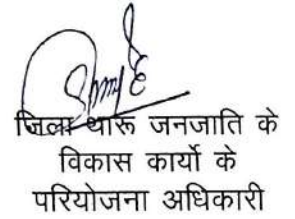 जिला थारू जनजाति के
विकास कार्यो के
परियोजना अधिकारी